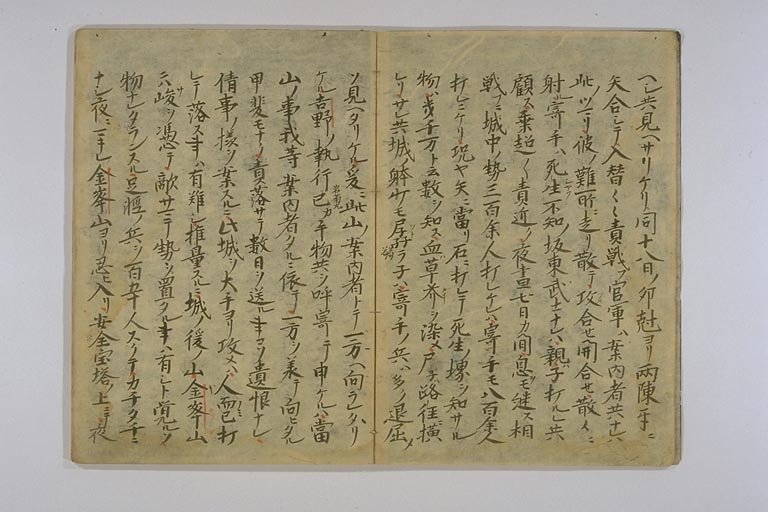 ヘレ共見ヘサリケリ同十八日ノ卯尅ヨリ両陳互ニ
矢合シテ入替〱責戦フ官軍ハ案内者共ナレハ
此ツニリ彼ノ難所ニ走リ散テ攻合セ開合セ散〱ニ
射寄手ハ死生不知ノ坂東武士ナレハ親子打ルレ共
顧ス乗超〱責近ク夜昼七日カ間息モ継ス相
戦フニ城中ノ勢三百余人打レケレハ寄手モ八百余人
打レニケリ況ヤ矢ニ當リ石ニ打レテ死生ノ堺ヲ知サル
物ハ幾千万ト云数ヲ知ス血草芥ヲ染メ尸路径横
レリサレ共城ノ躰少モ屈ネハ寄手ノ兵ハ多ノ退屈
ソ見ヘタリケル爰ニ此山ノ案内者トテ一方ヘ向ラレタリ
ケル吉野ノ執行己カ手物共ヲ呼寄テ申ケルハ當
山ノ事我等案内者タルニ依テ一方ヲ承テ向ヒタル
甲斐モナク責落サテ数日ヲ送ル事コソ遺恨ナレ
倩事ノ様ヲ案スルニ此城ヲ大手ヨリ攻メハ人而已打
レテ落ス事ハ有難シ推量スルニ城ノ後ノ山金峯山
ニハ峻ヲ憑テ敵サニテ勢ヲ置タル事ハ有シト覚ルソ
物ナレタランスル足軽ノ兵ヲ百五十人スクテカチタチニ
ナレ夜ニ一テレ金峯山ヨリ忍ヒ入リ安全宝塔ノ上ニテ夜